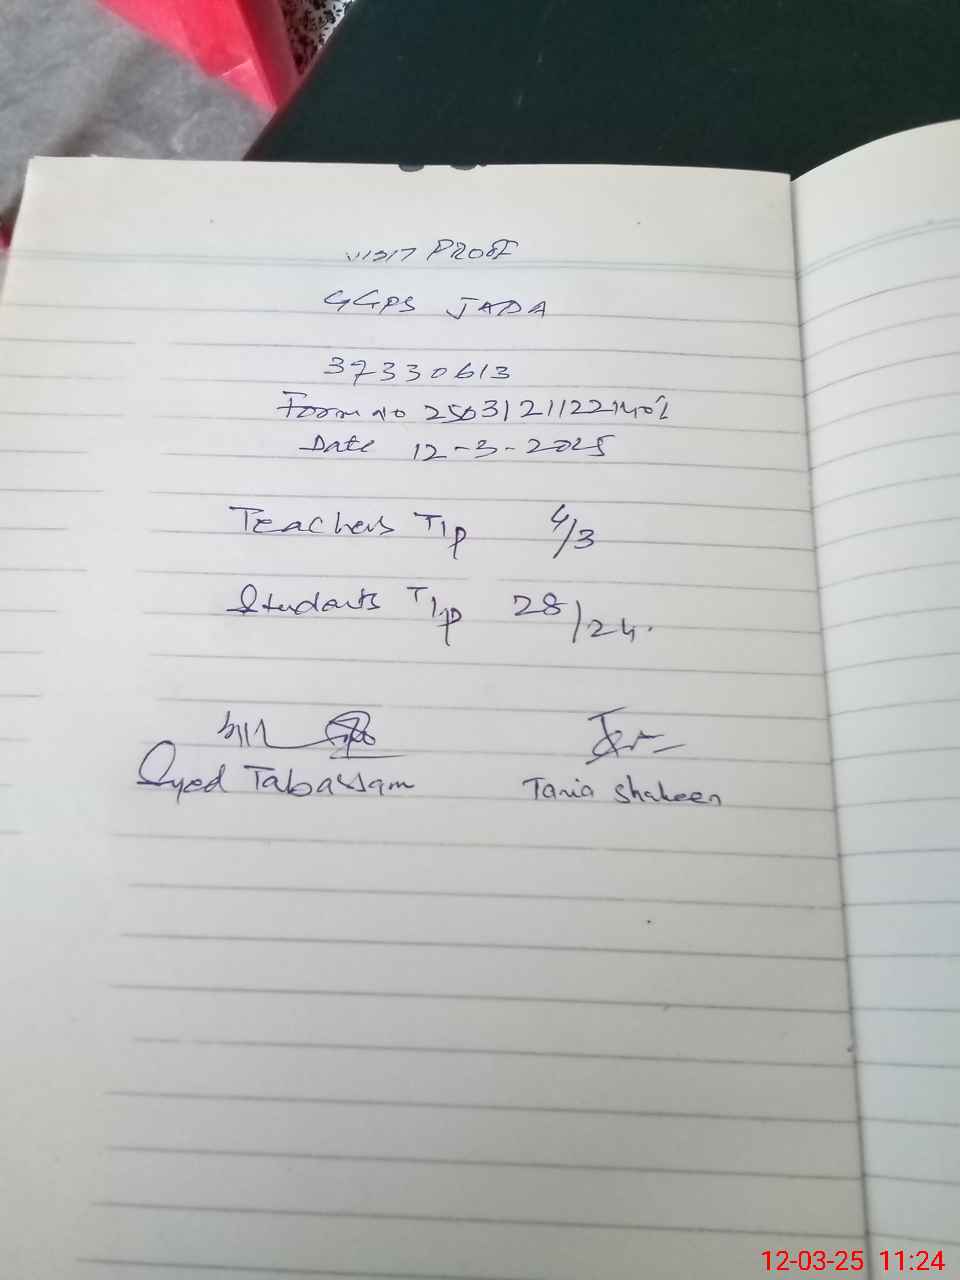 VISIT PROOF
GGPS JADA
37330613
Form no 25031211221401
Date 12-3-2025
Teachers T/p 4/3
Students T/p 28/24.
Syed Tabassam Tania Shaheen
12-03-25 11:24